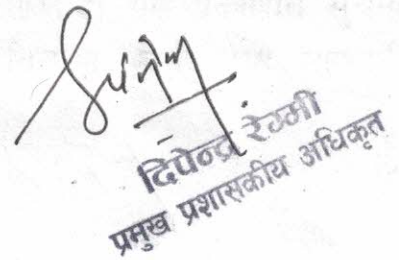 दिपेन्द्र रेग्मी
प्रमुख प्रशासकीय अधिकृत